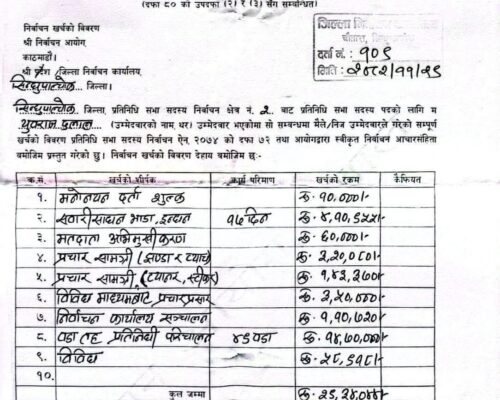 (दफा ८० को उपदफा (२) र (३) सँग सम्बन्धित)
निर्वाचन खर्चको विवरण
श्री निर्वाचन आयोग,
काठमाडौं।
श्री प्रदेश/जिल्ला निर्वाचन कार्यालय,
सिन्धुपाल्चोक
जिल्ला
दर्ता नं.: १०९
मिति: २०८२/११/२९
सिन्धुपाल्चोक जिल्ला, प्रतिनिधि सभा सदस्य निर्वाचन क्षेत्र नं. २ बाट प्रतिनिधि सभा सदस्य पदको लागि म
युवराज दुलाल (उम्मेदवारको नाम, थर) उम्मेदवार भएकोमा सो सम्बन्धमा मैले/निज उम्मेदवारले गरेको सम्पूर्ण
खर्चको विवरण प्रतिनिधि सभा सदस्य निर्वाचन ऐन, २०७४ को दफा ७२ तथा आयोगद्वारा स्वीकृत निर्वाचन आचारसंहिता
बमोजिम प्रस्तुत गरेको छु। निर्वाचन खर्चको विवरण देहाय बमोजिम छ:-
क्र.सं. खर्चको शीर्षक कार्य परिमाण खर्चको रकम कैफियत
१. मनोनयन दर्ता शुल्क रु. १०,०००/-
२. सवारी साधन भाडा, इन्धन १५ दिन
३. मतदाता अभिमुखीकरण रु. ६०,०००/-
४. प्रचार सामग्री (झण्डा र ट्याच) रु. २,२०,०८०/-
५. प्रचार सामग्री, (ब्यानर, स्टीकर) रु. १,४२,२७०/-
६. विविध माध्यमबाट प्रचार प्रसार रु. २,५०,०००/-
७. निर्वाचन कार्यालय सञ्चालन रु. १,१०,७२०/-
८. वडा तह प्रतिनिधी परिचालन ४९ वडा रु. १४,७०,०००/-
९. विविध रु. २८,५१८/-
१०.
कुल जम्मा